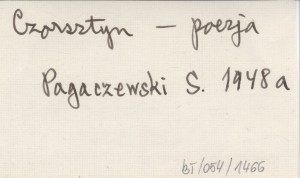 Czorsztyn — poezja
Pagaczewski S. 1948a
BT/054/1466